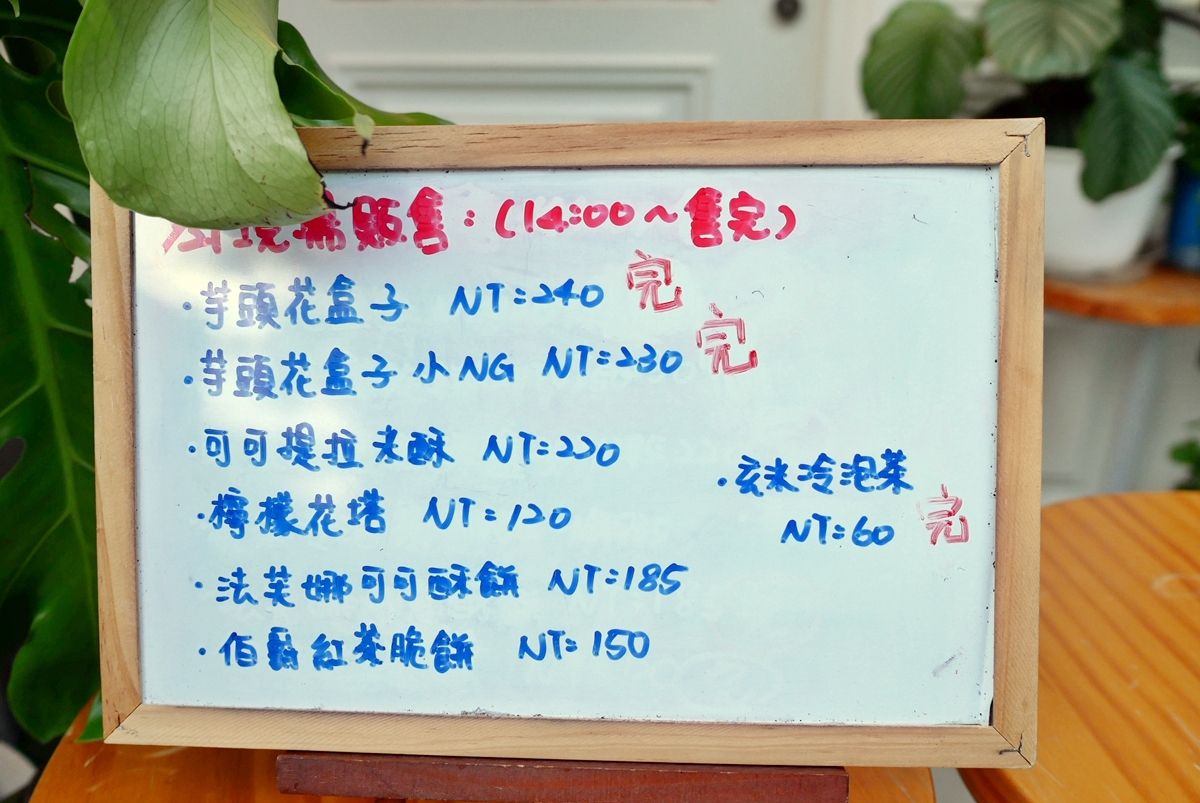 現場販售：(14:00～售完)
・芋頭花盒子 NT=240 完
・芋頭花盒子 小NG NT=230 完
・可可提拉米酥 NT=220
・檸檬花塔 NT=120
・法芙娜可可酥餅 NT=185
・伯爵紅茶脆餅 NT=150
・玄米冷泡茶
NT=60 完